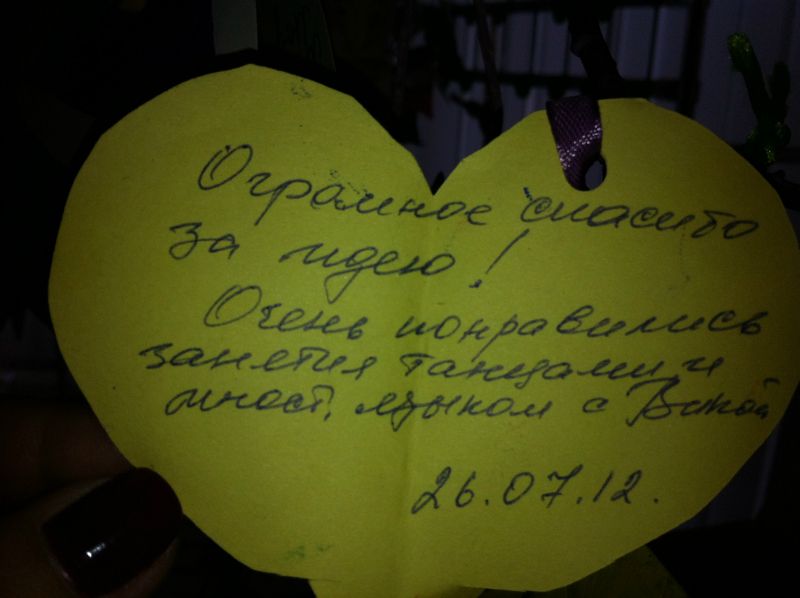 Огромное спасибо
за идею!
Очень понравились
занятия танцами и
иност. языком с Викой
26.07.12.